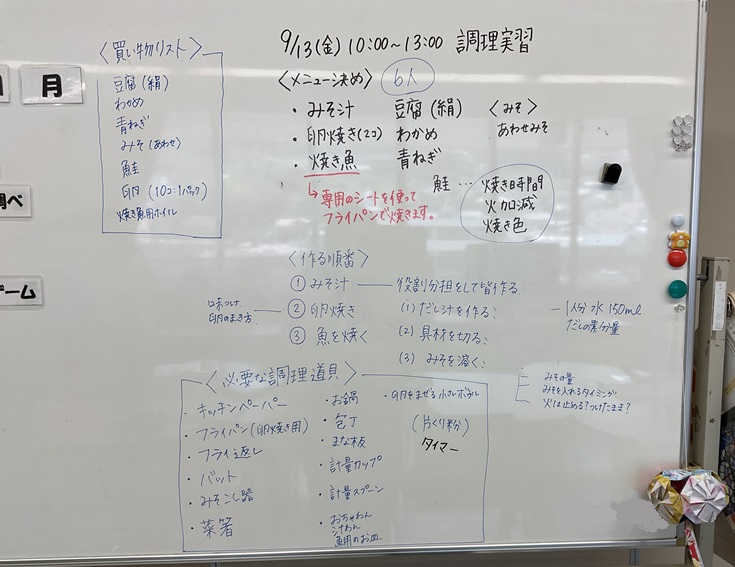 9/13(金) 10:00~13:00 調理実習
<買い物リスト>
豆腐(絹)
わかめ
青ねぎ
みそ(あわせ)
鮭
卵 (10コ:1パック)
焼き魚用ホイル
月
調べ
ゲーム
<メニュー決め> 6人
・みそ汁 豆腐(絹) <みそ>
・卵焼き(2コ) わかめ あわせみそ
・焼き魚 青ねぎ
↳専用のシートを使って
フライパンで焼きます。
鮭…焼き時間
火加減
焼き色
<作る順番>
① みそ汁 — 役割分担をして皆作る
② 卵焼き
③ 魚を焼く
味つけ
卵のまき方
(1) だし汁を作る:
(2) 具材を切る:
(3) みそを溶く:
- 1人分 水 150ml
だしの素分量
みその量
みそを入れるタイミング
火は止める?つけたまま?
<必要な調理道具>
・キッチンペーパー
・フライパン(卵焼き用)
・フライ返し
・バット
・みそこし器
・菜箸
・お鍋
・包丁
・まな板
・計量カップ
・計量スプーン
・おちゃわん
汁わん
魚用のお皿
・卵をまぜる小さいボウル
(片くり粉)
タイマー